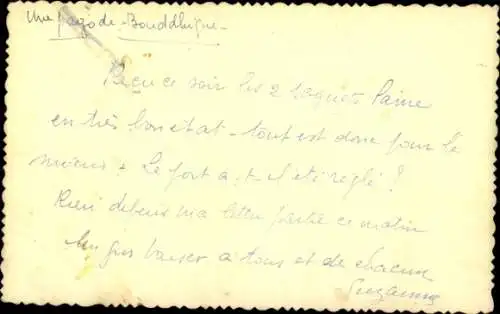 Une pagode Bouddhique -
Reçu ce soir les 2 paquets laine
en très bon état - tout est donc pour le
mieux. Le port a-t-il été réglé ?
Rien depuis ma lettre partie ce matin
Un gros baiser à tous et de chacun
Suzanne